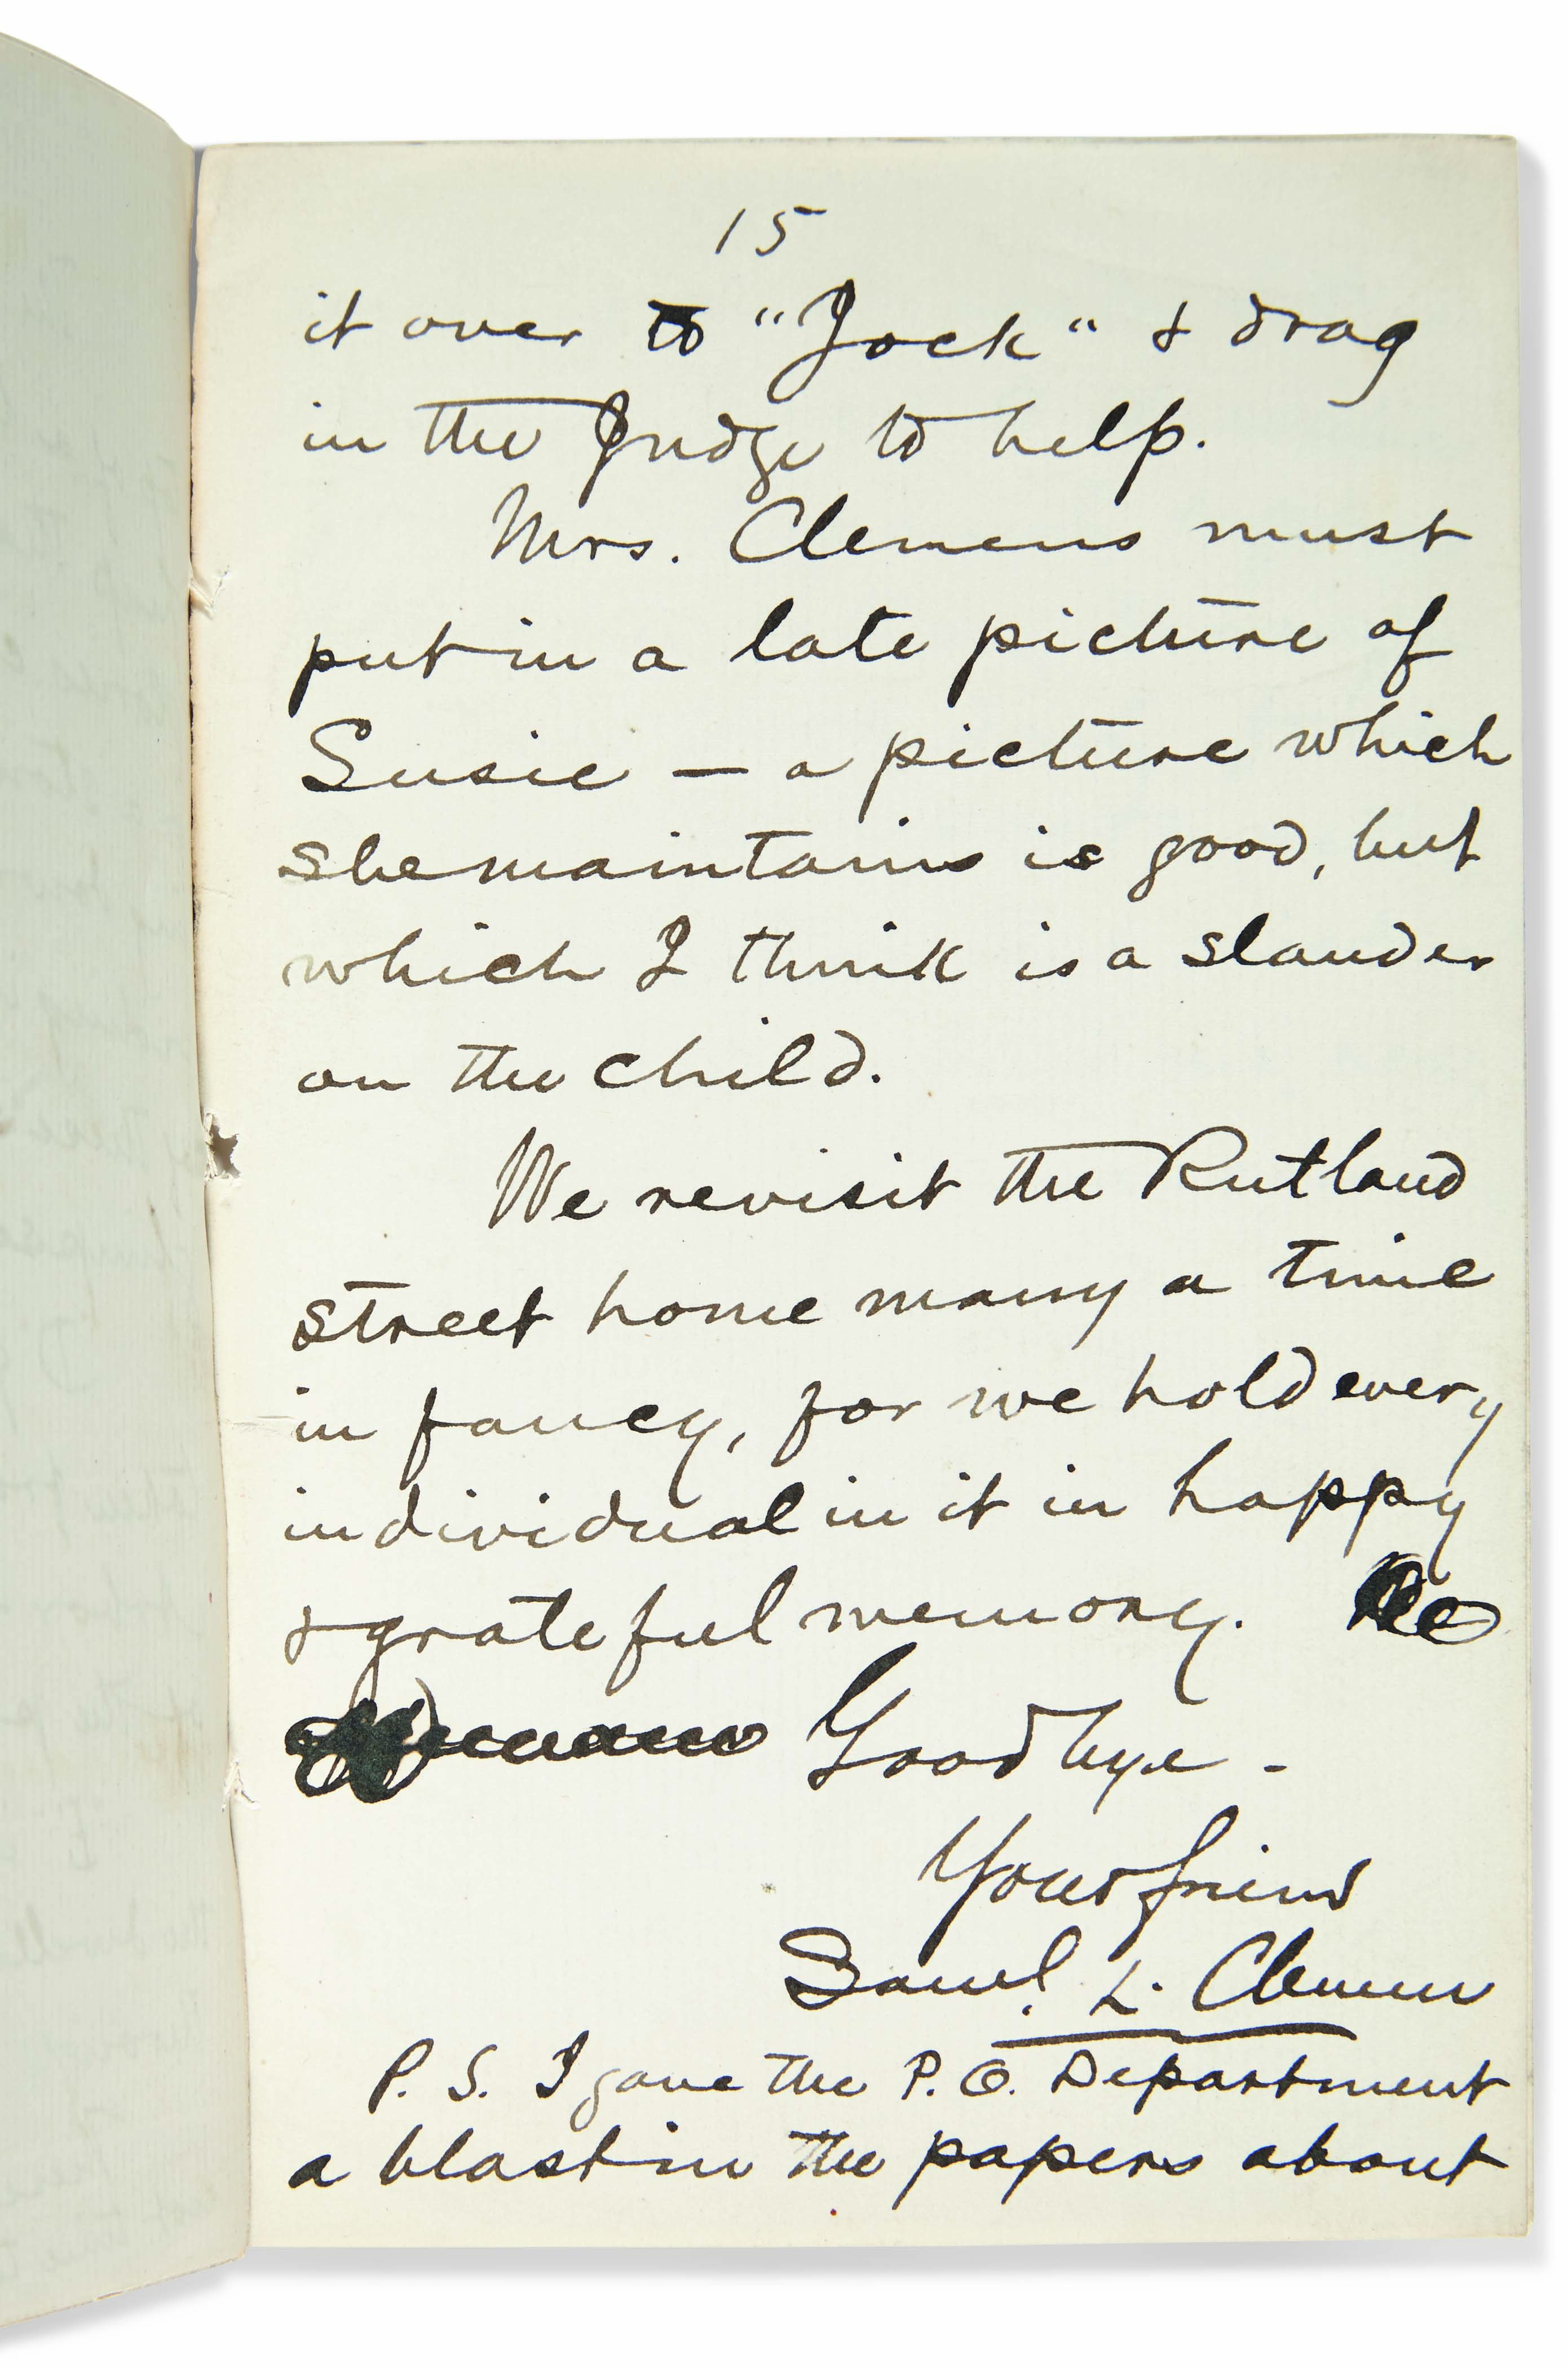 15
it over to "Jock" & drag
in the Judge to help.
Mrs. Clemens must
put in a late picture of
Susie — a picture which
she maintains is good, but
which I think is a slander
on the child.
We revisit the Rutland
street home many a time
in fancy, for we hold every
individual in it in happy
& grateful memory.
Goodbye -
Your friend
Saml. L. Clemens
P. S. I gave the P. O. Department
a blast in the papers about